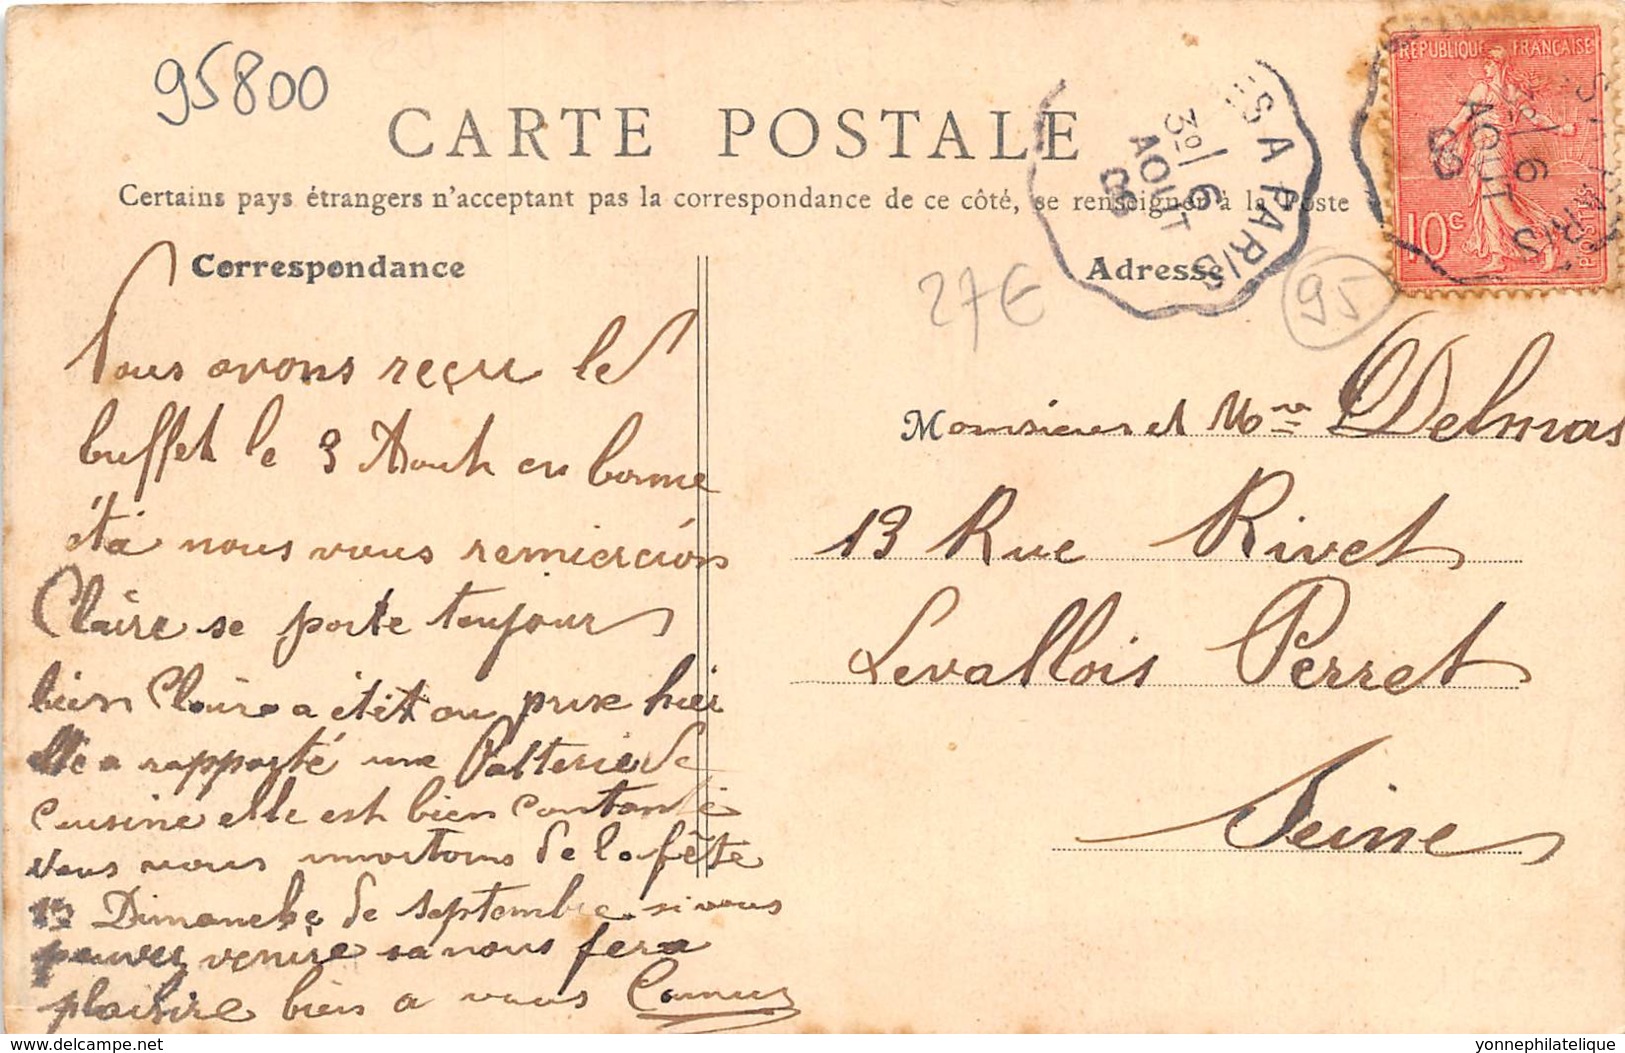 95800
CARTE POSTALE
Certains pays étrangers n'acceptant pas la correspondance de ce côté, se renseigner à la Poste
Correspondance
Adresse
RÉPUBLIQUE FRANÇAISE
10c
POSTES
S A PARIS
3º/ 6
AOUT
27€
95
Nous avons reçu le
buffet le 3 Aout en bonne
éta nous vous remiercion
Claire se porte toujour
bien Claire a
prix hier
elle a rapporté une Batterie de
cuisine elle est bien contante
vous nous de la fête
Dimanche de septembre si vous
pouvez venire sa nous fera
plaisire bien a vous
Monsieur et Mme Delmas
13 Rue Rivet
Levallois Perret
Seine
https://www.delcampe.net
yonnephilatelique